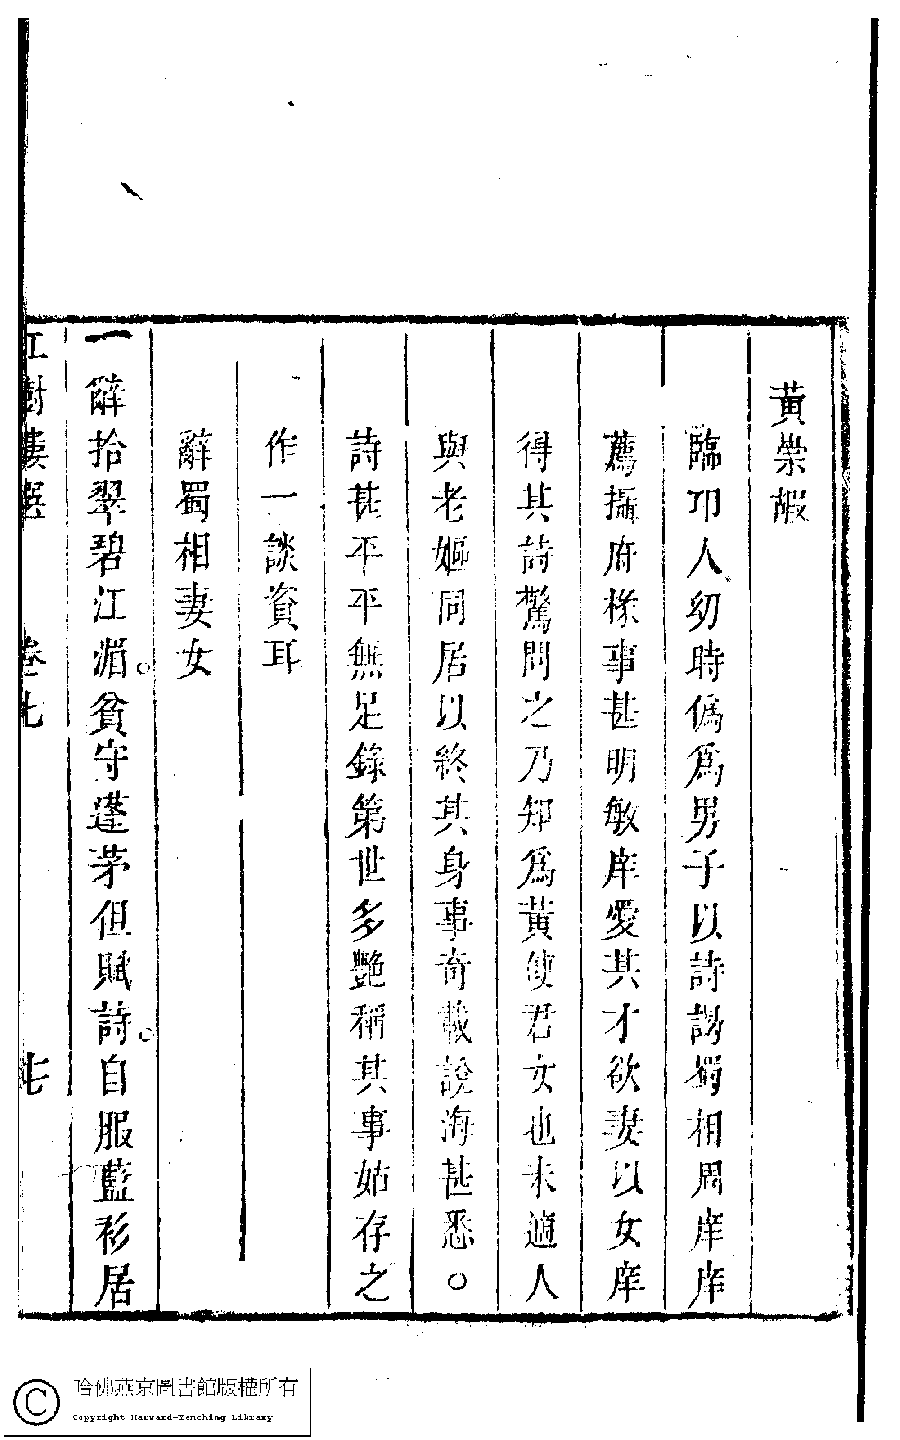 黃崇嘏
臨邛人幼時僞爲男子以詩謁蜀相周庠庠
薦攝府椽事甚明敏庠愛其才欲妻以女庠
得其詩驚問之乃知爲黃使君女也未適人
與老嫗同居以終其身事奇載說海甚悉○
詩甚平平無足錄第世多艷稱其事姑存之
作一談資耳
辭蜀相妻女
一辭拾翠碧江湄。貧守蓬茅但賦詩。自服藍衫居
紅樹樓選 卷七 七
哈佛燕京圖書館版權所有
Copyright Harvard-Yenching Library